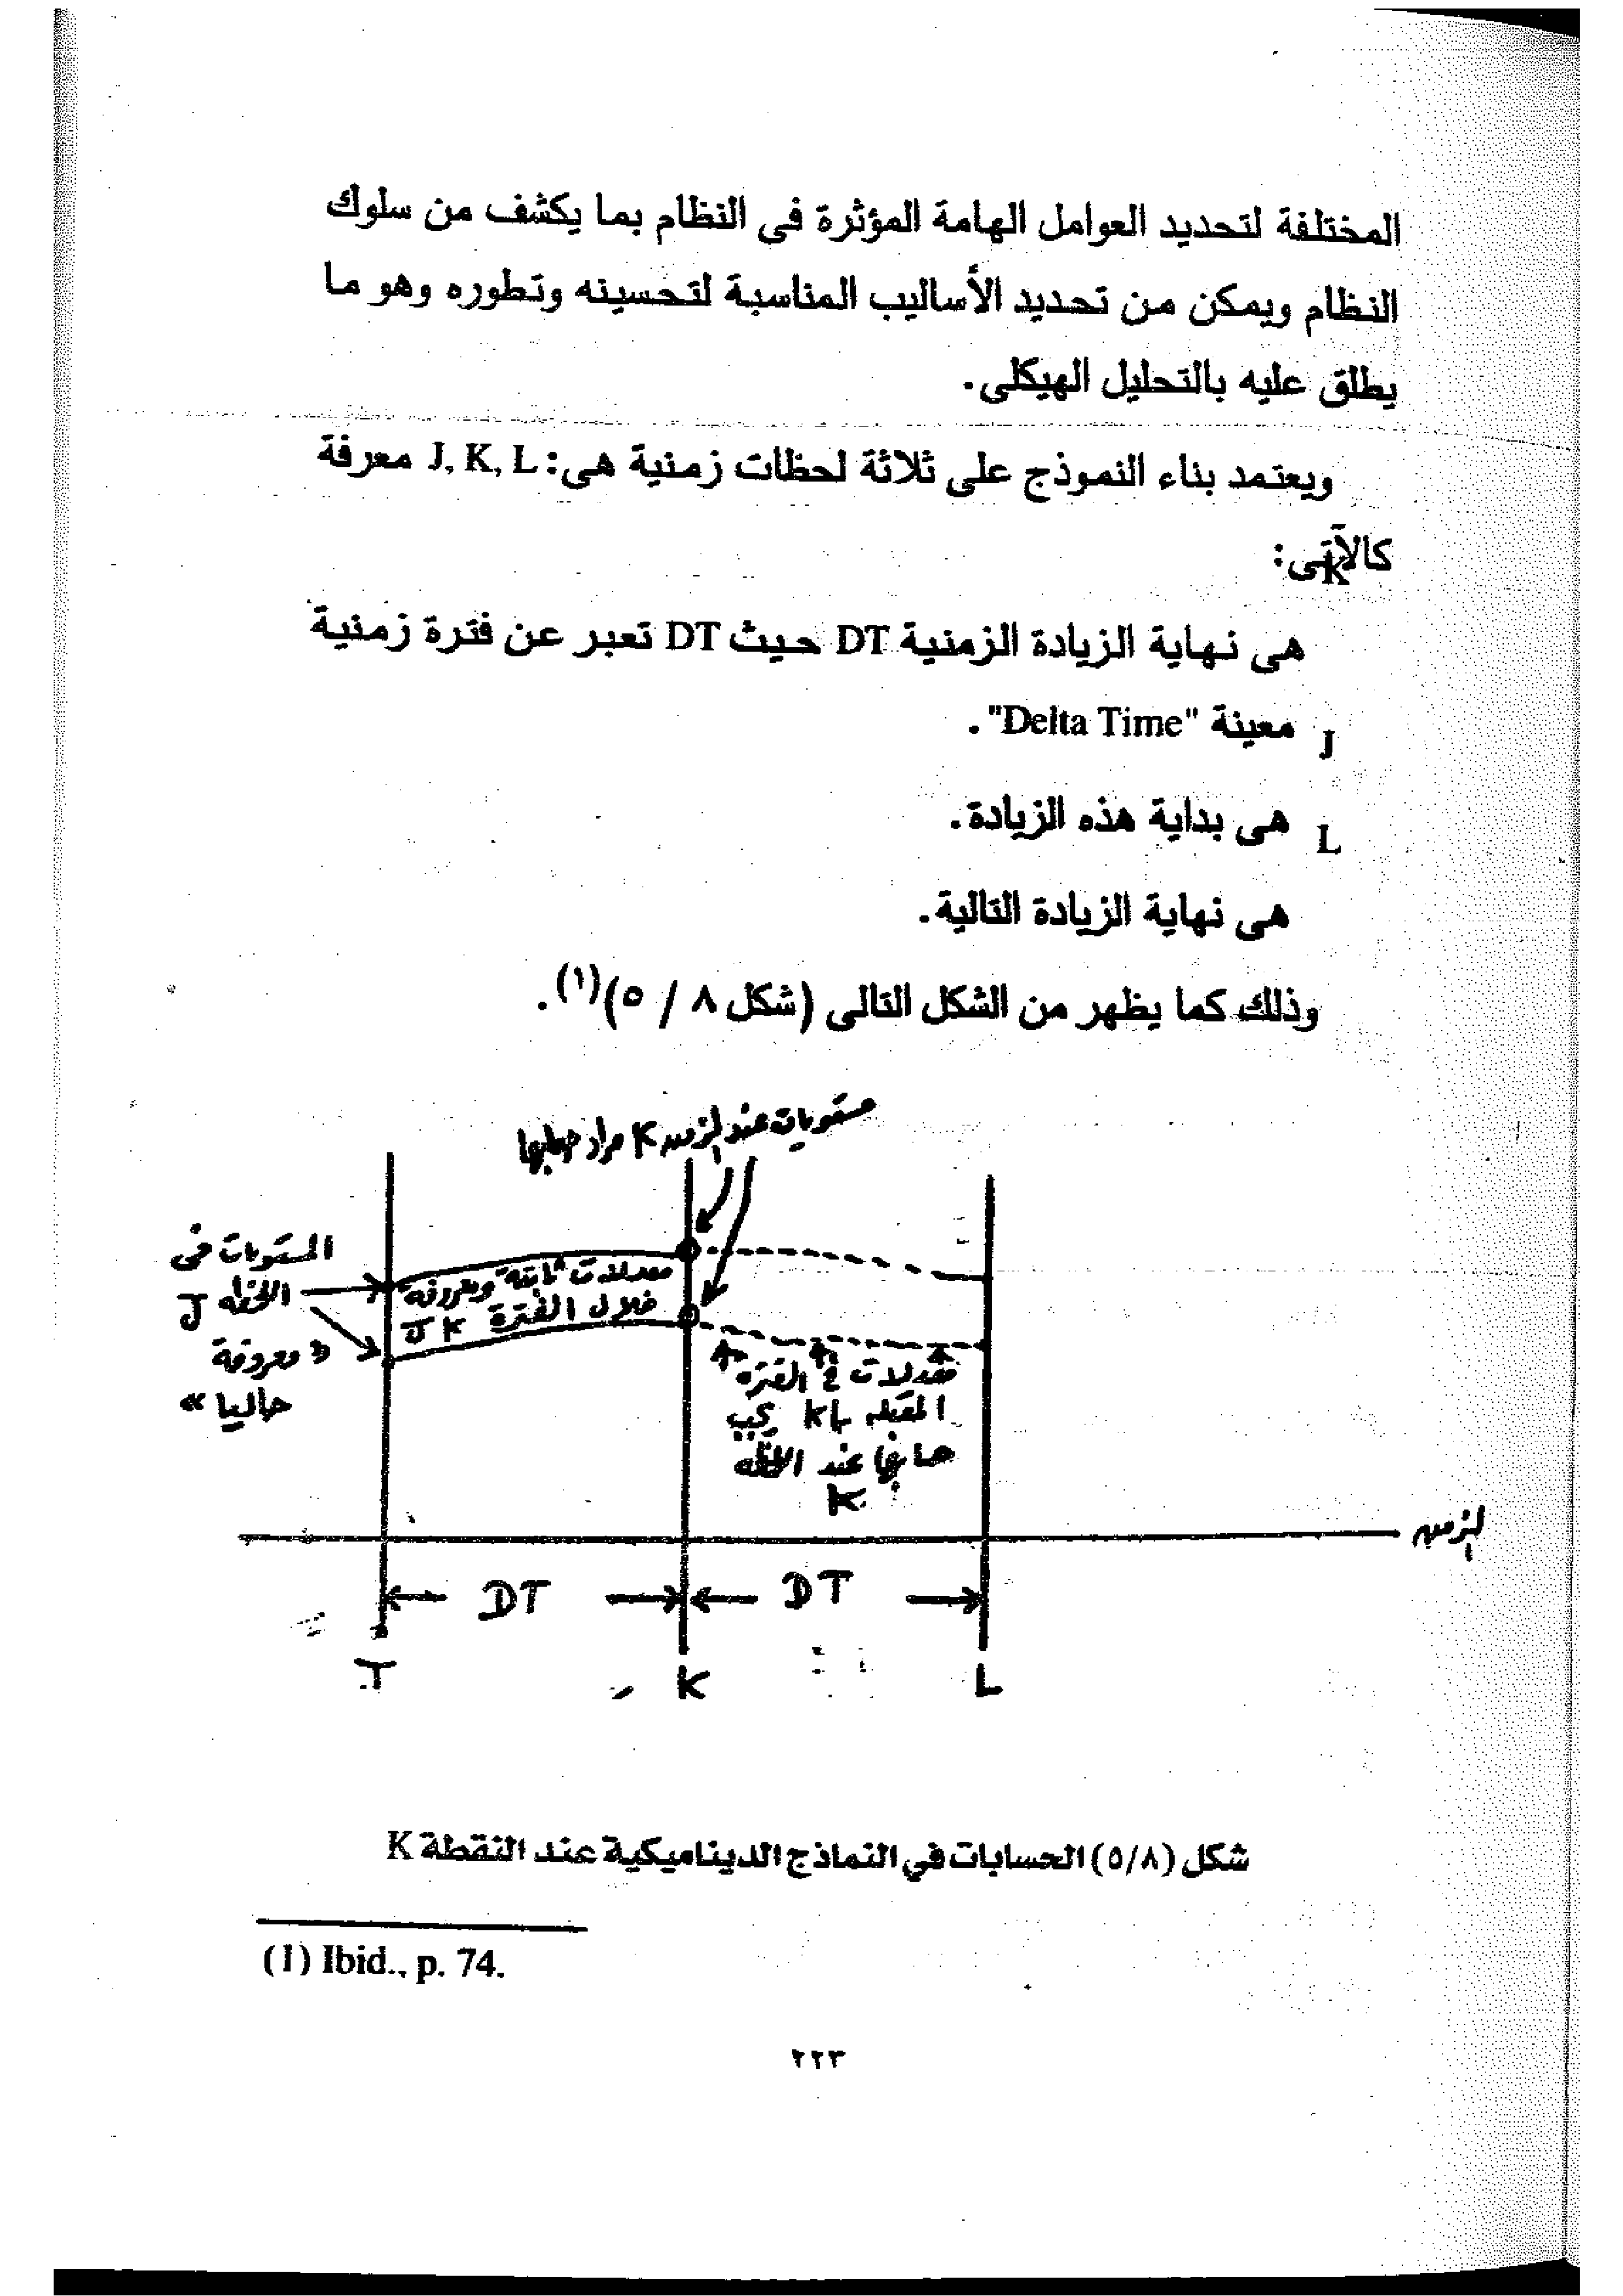 المختلفة لتحديد العوامل الهامة المؤثرة فى النظام بما يكشف من سلوك
النظام ويمكن من تحديد الأساليب المناسبة لتحسينه وتطوره وهو ما
يطلق عليه بالتحليل الهيكلى.
ويعتمد بناء النموذج على ثلاثة لحظات زمنية هى: J, K, L معرفة
كالآتى:
K
هى نهاية الزيادة الزمنية DT حيث DT تعبر عن فترة زمنية
معينة "Delta Time".
J
هى بداية هذه الزيادة.
L
هى نهاية الزيادة التالية.
وذلك كما يظهر من الشكل التالى (شكل ٨ / ٥)(١).
مستويات عند الزمن K مراد حسابها
المستويات فى
اللحظه J
« معروفة
حاليا »
معدلات ثابتة ومعروفه
خلال الفترة JK
معدلات فى الفتره
المقبله KL يجب
حسابها عند اللحظه
K
الزمن
DT
DT
J
K
L
شكل (٥/٨) الحسابات في النماذج الديناميكية عند النقطة K
(1) Ibid., p. 74.
٢٢٣